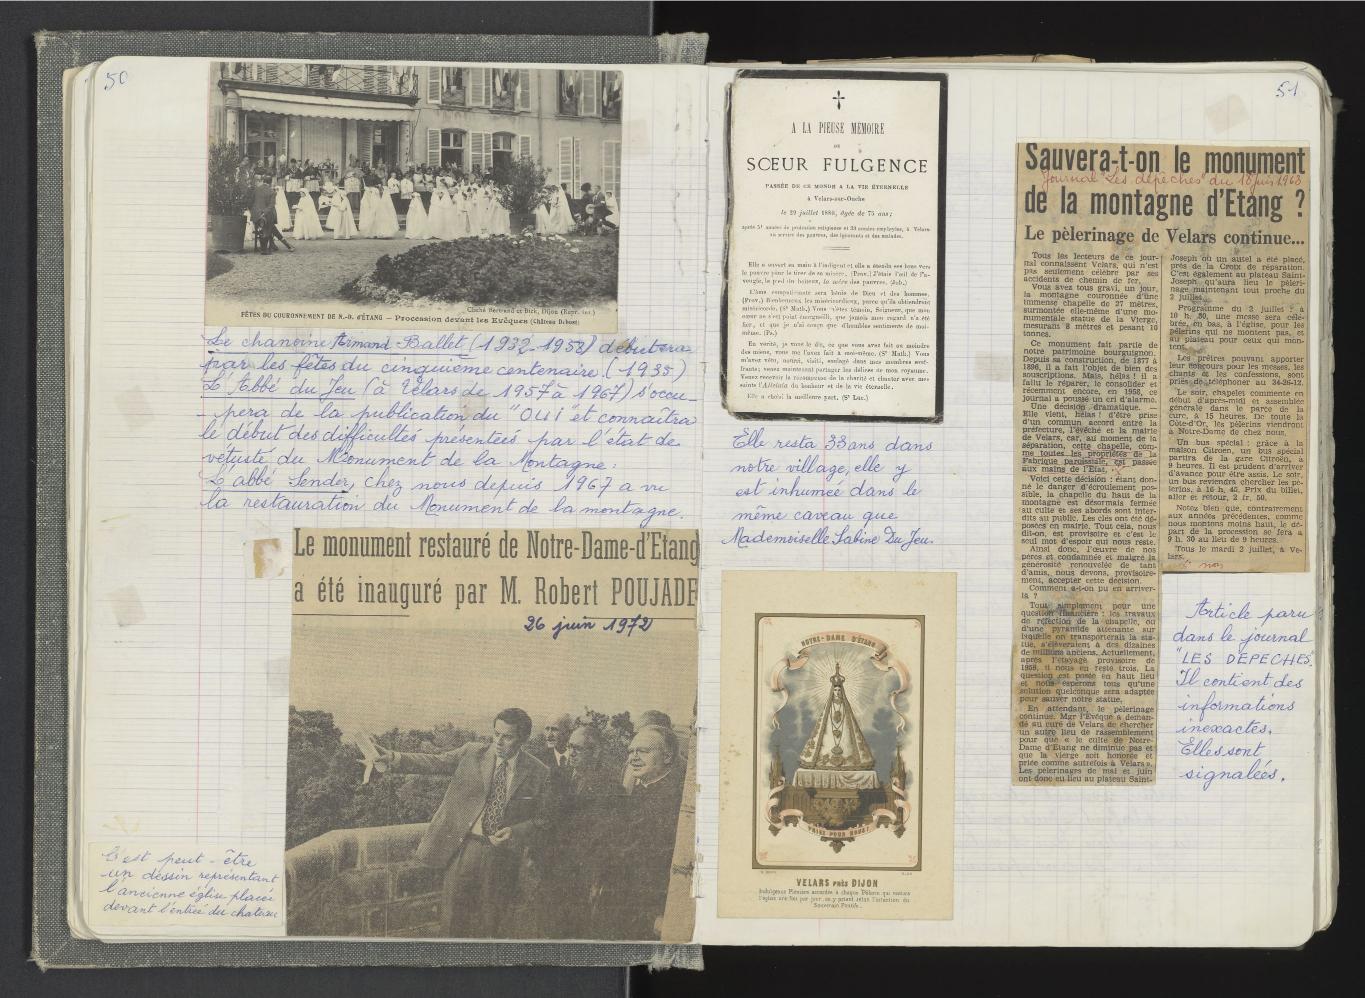 50
Cliché Bertrand et Dick, Dijon (Repr. int.)
FÊTES DU COURONNEMENT DE N.-D. d'ÉTANG – Procession devant les Evêques (Château Dubois)
Le chanoine Armand Ballet (1932-1958) débutera
par les fêtes du cinquième centenaire (1935)
L'Abbé du Jeu (à Velars de 1957 à 1967) s'occu-
pera de la publication du "OUI" et connaîtra
le début des difficultés présentées par l'état de
vétusté du Monument de la Montagne.
L'abbé Sender, chez nous depuis 1967 a vu
la restauration du Monument de la montagne.
Le monument restauré de Notre-Dame-d'Etang
a été inauguré par M. Robert POUJADE
26 juin 1972
C'est peut-être
un dessin représentant
l'ancienne église placée
devant l'entrée du chateau
A LA PIEUSE MÉMOIRE
DE
SŒUR FULGENCE
PASSÉE DE CE MONDE A LA VIE ÉTERNELLE
à Velars-sur-Ouche
le 29 juillet 1886, âgée de 75 ans;
après 51 années de profession religieuse et 33 années employées, à Velars
au service des pauvres, des ignorants et des malades.
Elle a ouvert sa main à l'indigent et elle a étendu ses bras vers
le pauvre pour le tirer de sa misère. (Prov.) J'étais l'œil de l'a-
veugle, le pied du boiteux, la mère des pauvres. (Job.)
L'âme compatissante sera bénie de Dieu et des hommes.
(Prov.) Bienheureux les miséricordieux, parce qu'ils obtiendront
miséricorde. (St Math.) Vous m'êtes témoin, Seigneur, que mon
cœur ne s'est point énorgueilli, que jamais mon regard n'a été
fier, et que je n'ai conçu que d'humbles sentiments de moi-
même. (Ps.)
En vérité, je vous le dis, ce que vous avez fait au moindre
des miens, vous me l'avez fait à moi-même. (St Math.) Vous
m'avez vêtu, nourri, visité, soulagé dans mes membres souf-
frants; venez maintenant partager les délices de mon royaume.
Venez recevoir la récompense de la charité et chanter avec mes
saints l'Alleluia du bonheur et de la vie éternelle.
Elle a choisi la meilleure part. (St Luc.)
Elle resta 33 ans dans
notre village, elle y
est inhumée dans le
même caveau que
Mademoiselle Sabine Du Jeu.
NOTRE-DAME D'ÉTANG
PRIEZ POUR NOUS!
VELARS PRÈS DIJON
Indulgence Plénière accordée à chaque Pèlerin qui visitera
l'église une fois par jour, en y priant selon l'intention du
Souverain Pontife.
51
Sauvera-t-on le monument
Journal "Les dépêches" du 18 juin 1963
de la montagne d'Etang ?
Le pèlerinage de Velars continue...
Tous les lecteurs de ce jour-
nal connaissent Velars, qui n'est
pas seulement célèbre par ses
accidents de chemin de fer.
Vous avez tous gravi, un jour,
la montagne couronnée d'une
immense chapelle de 27 mètres,
surmontée elle-même d'une mo-
numentale statue de la Vierge,
mesurant 8 mètres et pesant 10
tonnes.
Ce monument fait partie de
notre patrimoine bourguignon.
Depuis sa construction, de 1877 à
1896, il a fait l'objet de bien des
souscriptions. Mais, hélas ! il a
fallu le réparer, le consolider et
récemment encore, en 1958, ce
journal a poussé un cri d'alarme.
Une décision dramatique. —
Elle vient, hélas ! d'être prise
d'un commun accord entre la
préfecture, l'évêché et la mairie
de Velars, car, au moment de la
séparation, cette chapelle, com-
me toutes les propriétés de la
Fabrique paroissiale, est passée
aux mains de l'Etat.
Voici cette décision : étant don-
né le danger d'écroulement pos-
sible, la chapelle du haut de la
montagne est désormais fermée
au culte et ses abords sont inter-
dits au public. Les clés ont été dé-
posées en mairie. Tout cela, nous
dit-on, est provisoire et c'est le
seul mot d'espoir qui nous reste.
Ainsi donc, l'œuvre de nos
pères est condamnée et malgré la
générosité renouvelée de tant
d'amis, nous devons, provisoire-
ment, accepter cette décision.
Comment a-t-on pu en arriver-
là ?
Tout simplement pour une
question financière : les travaux
de réfection de la chapelle, ou
d'une pyramide attenante sur
laquelle on transporterait la sta-
tue, s'élèveraient à des dizaines
de millions anciens. Actuellement,
après l'étayage provisoire de
1958, il nous en reste trois. La
question est posée en haut lieu
et nous espérons tous qu'une
solution quelconque sera adoptée
pour sauver notre statue.
En attendant, le pèlerinage
continue. Mgr l'Evêque a deman-
dé au curé de Velars de chercher
un autre lieu de rassemblement
pour que « le culte de Notre-
Dame d'Etang ne diminue pas et
que la vierge soit honorée et
priée comme autrefois à Velars ».
Les pèlerinages de mai et juin
ont donc eu lieu au plateau Saint-
Joseph où un autel a été placé,
près de la Croix de réparation.
C'est également au plateau Saint-
Joseph qu'aura lieu le pèleri-
nage maintenant tout proche du
2 juillet.
Programme du 2 juillet : à
10 h. 30, une messe sera célé-
brée, en bas, à l'église, pour les
pèlerins qui ne montent pas, et
au plateau pour ceux qui mon-
tent.
Les prêtres pouvant apporter
leur concours pour les messes, les
chants et les confessions, sont
priés de téléphoner au 34-26-12.
Le soir, chapelet commenté en
début d'après-midi et assemblée
générale dans le parc de la
cure, à 15 heures. De toute la
Côte-d'Or, les pèlerins viendront
à Notre-Dame de chez nous.
Un bus spécial : grâce à la
maison Citroën, un bus spécial
partira de la gare Citroën, à
9 heures. Il est prudent d'arriver
d'avance pour être assis. Le soir,
un bus reviendra chercher les pè-
lerins, à 16 h. 45. Prix du billet,
aller et retour, 2 fr. 50.
Notez bien que, contrairement
aux années précédentes, comme
nous montons moins haut, le dé-
part de la procession se fera à
9 h. 30 au lieu de 9 heures.
Tous le mardi 2 juillet, à Ve-
lars.
Article paru
dans le journal
"LES DEPECHES".
Il contient des
informations
inexactes.
Elles sont
signalées.